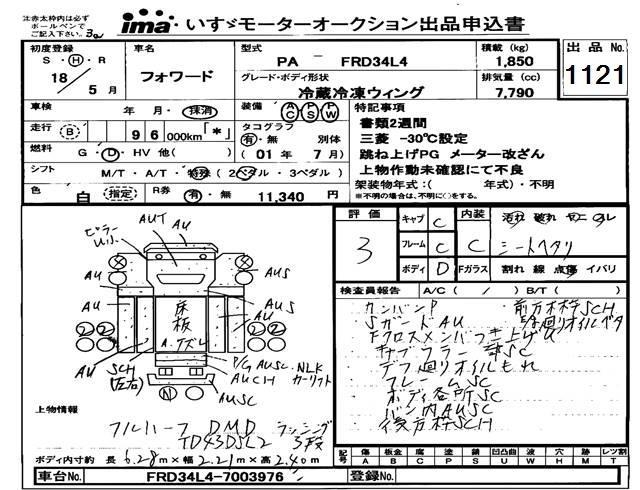 注:赤太枠内は必ず
ボールペンで
ご記入下さい。
ima いすゞモーターオークション出品申込書
初度登録 車名 型式 積載 (kg) 出品No.
S・H・R フォワード PA － FRD34L4 1,850 1121
18 5月 グレード・ボディ形状 排気量 (cc)
冷蔵冷凍ウィング 7,790
車検 年 月・抹消 装備 AC PS PW 特記事項
書類2週間
走行 (B) 96000km「*」 タコグラフ 三菱 -30℃設定
有・無 別体 跳ね上げPG メーター改ざん
燃料 G・D・HV 他( ) (01年 7月) 上物作動未確認にて不良
シフト M/T・A/T・特殊 (2ペダル・3ペダル) 架装物年式:( 年式)・不明
※不明の場合は、不明に○をする。
色 白 (指定) R券 有・無 11,340 円
評価 3 キャブ C 内装 C 汚れ 破れ ヤニ コゲ
フレーム C シートヘタリ
ボディ D Fガラス 割れ 線 点傷 イバリ
検査員報告 A/C ( / ) B/T ( )
カンバンP 前方枠SCH
SガードAU
デフ廻りオイルもれ
フレームSC
ボディ各所SC
バン内AUSC
後方枠SCH
ピラー
AUT
AU
AU AUS
AU AUS
床板
AU AU
SCH
(左右)
P/G AUSC NLK
AUCH カーリフト
AUSC
N
上物情報
フルハーフ DMD ラッシング
TD43DSL2 3段
ボディ内寸約 長 6.28m×幅 2.21m×高 2.40m
記号 傷 A 板金 B 腐 C 塗 P 錆 S 凹凸曲 U 波 W 穴 H 跡 M レツ割 T
車台No. FRD34L4-7003976 登録No.